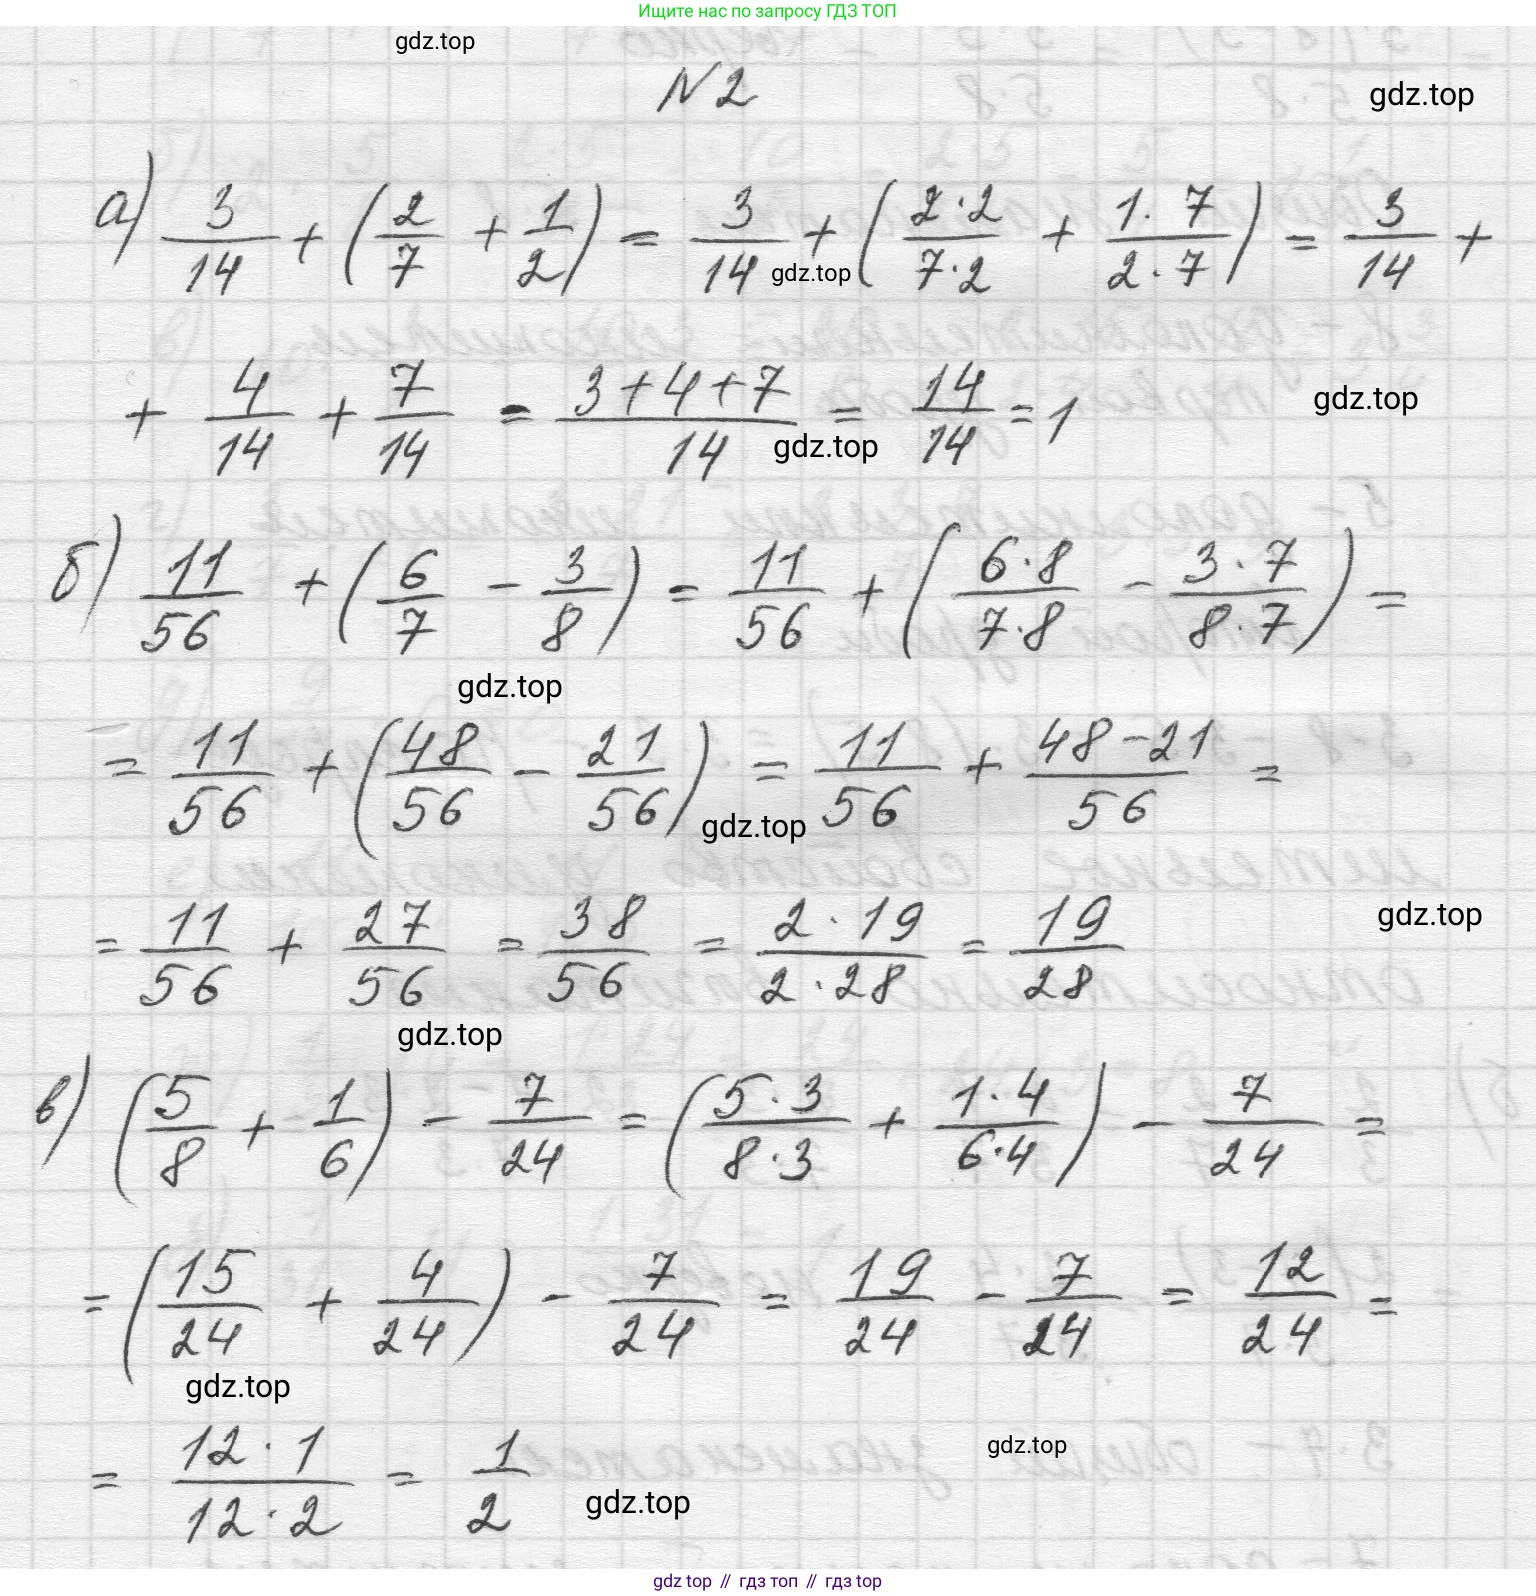 Ищите нас по запросу ГДЗ ТОП
gdz.top
N 2
gdz.top
а) 3/14 + (2/7 + 1/2) = 3/14 + (2·2/7·2 + 1·7/2·7) = 3/14 +
gdz.top
+ 4/14 + 7/14 = 3+4+7/14 = 14/14 = 1
gdz.top
gdz.top
б) 11/56 + (6/7 - 3/8) = 11/56 + (6·8/7·8 - 3·7/8·7) =
gdz.top
= 11/56 + (48/56 - 21/56) = 11/56 + 48-21/56 =
gdz.top
= 11/56 + 27/56 = 38/56 = 2·19/2·28 = 19/28
gdz.top
gdz.top
в) (5/8 + 1/6) - 7/24 = (5·3/8·3 + 1·4/6·4) - 7/24 =
= (15/24 + 4/24) - 7/24 = 19/24 - 7/24 = 12/24 =
gdz.top
= 12·1/12·2 = 1/2
gdz.top
gdz.top
gdz top // гдз топ // gdz.top